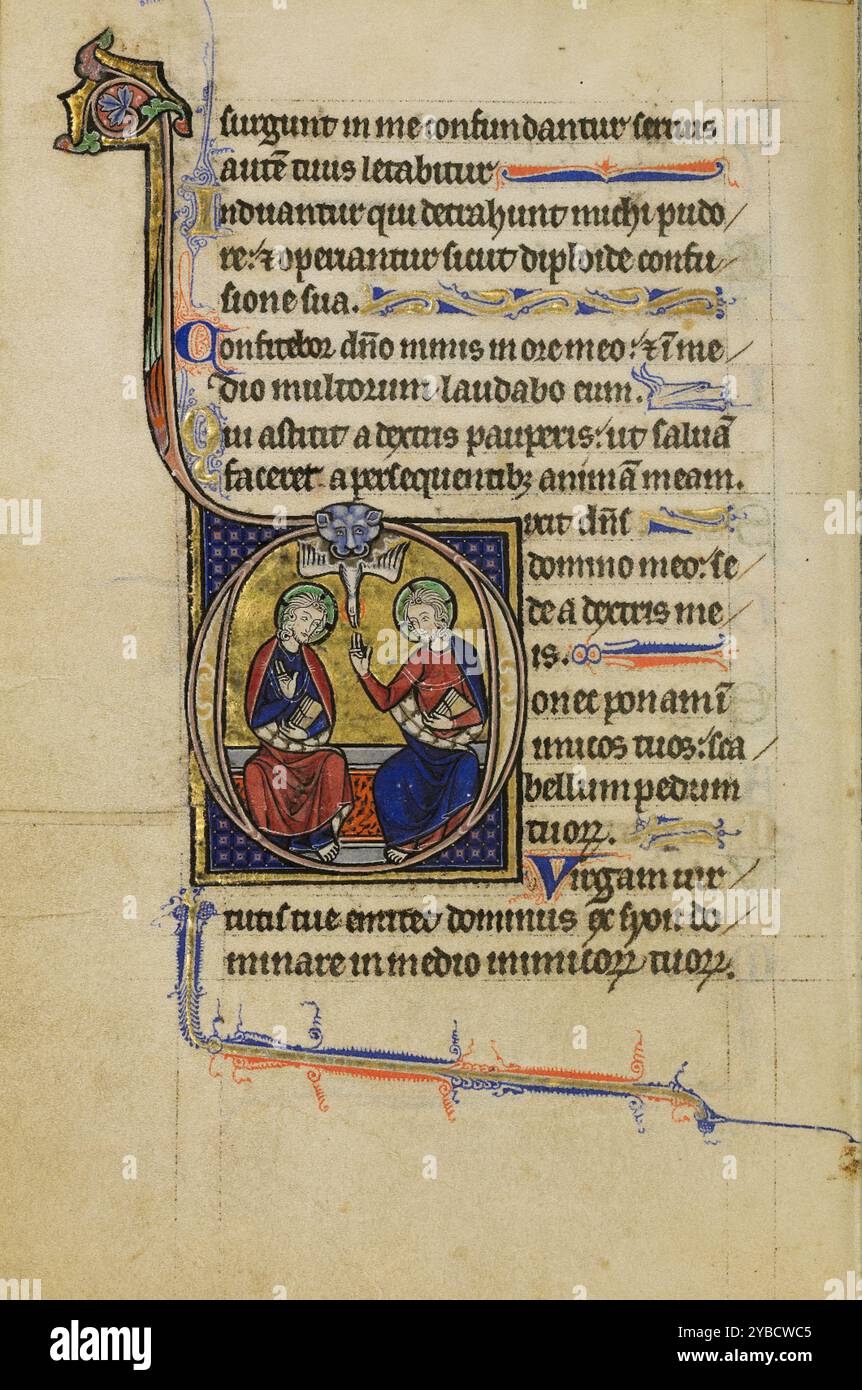 surgunt in me confundantur servus
autē tuus letabitur
Induantur qui detrahunt michi pudo/
re: ⁊ operiantur sicut diploide confu/
sione sua.
Confitebor dn̄o nimis in ore meo: ⁊ ī me/
dio multorum laudabo eum.
Qui astitit a dextris pauperis: ut saluā
faceret a persequentibꝫ animā meam.
Dixit dn̄s
domino meo: se/
de a dextris me/
is.
Donec ponam ī
imicos tuos: sca/
bellum pedum
tuoꝝ.
Virgam vir/
tutis tue emittet dominus ex syon: do/
minare in medio inimicoꝝ tuoꝝ.
alamy
Image ID: 2YBCWC5
www.alamy.com